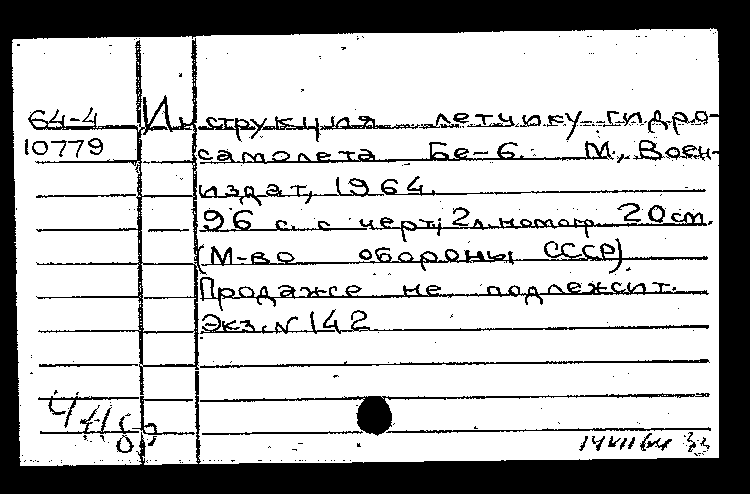 64-4 Инструкция летчику гидро-
10779 самолета Бе-6. М., Воен-
издат, 1964.
96 с. с черт; 2 л. номогр. 20 см.
(М-во обороны СССР)
Продаже не подлежит.
Экз. N 142
14 VII 64